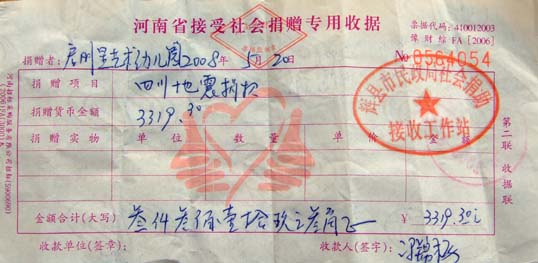 河南省接受社会捐赠专用收据
票据代码:410012003
豫财综FA[2006]
捐赠者: 幼儿园2008年5月20日
No 0584054
捐赠项目 四川地震捐款
捐赠货币金额 3319.30
捐赠实物 单位 数量 单价 金额
辉县市民政局社会捐助
接收工作站
金额合计(大写) 叁仟叁佰壹拾玖元叁角正 ¥ 3319.30元
收款单位(签章): 收款人(签字):
第二联 收据联